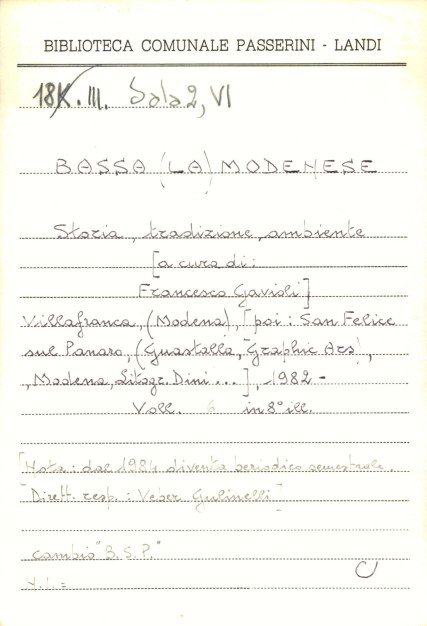 BIBLIOTECA COMUNALE PASSERINI - LANDI
18K.III. Sala 2, VI
BASSA (LA) MODENESE
Storia, tradizione, ambiente
[a cura di:
Francesco Gavioli]
Villafranca, (Modena), [poi: San Felice
sul Panaro, (Guastalla, "Graphic Ars",
, Modena, Litogr. Dini ...], 1982 -
Voll. 6 in 8° ill.
[Nota: dal 1984 diventa periodico semestrale.
Dirett. resp.: Veber Gulinelli]
cambio "B.S.P."
N.L.=